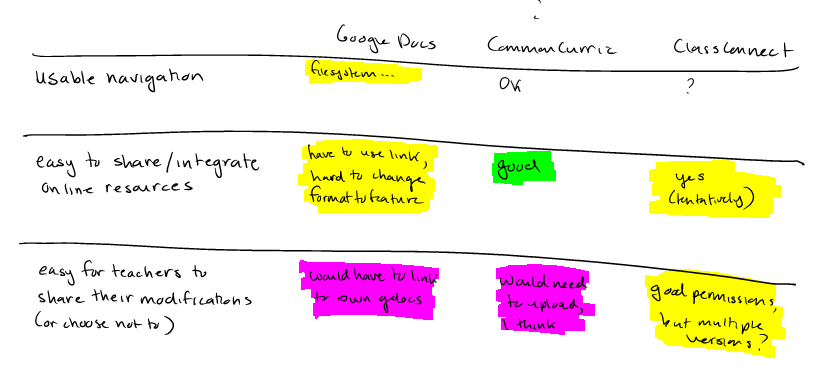 Google Docs CommonCurric ClassConnect
usable navigation filesystem... OK ?
easy to share/integrate
online resources
have to use link,
hard to change
format to feature
good
yes
(tentatively)
easy for teachers to
share their modifications
(or choose not to)
would have to link
to own gdocs
would need
to upload,
I think
good permissions,
but multiple
versions?